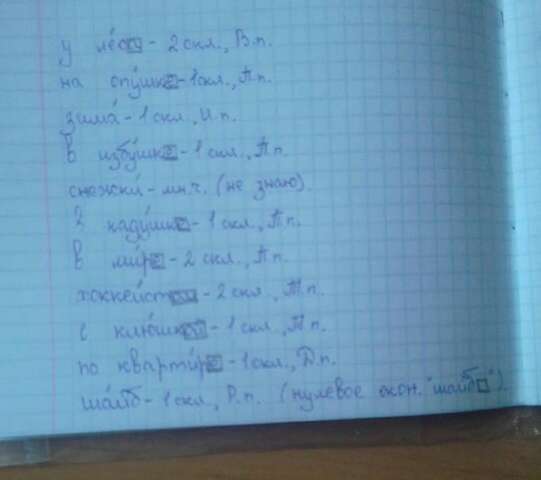 у ле́са - 2 скл., В.п.
на опу́шке - 1 скл., П.п.
зима́ - 1 скл., И.п.
в избу́шке - 1 скл., П.п.
снежки́ - мн.ч. (не знаю).
в каду́шке - 1 скл., П.п.
в ми́ре - 2 скл., П.п.
хоккеи́стом - 2 скл., Т.п.
с клю́шкой - 1 скл., Т.п.
по кварти́ре - 1 скл., Д.п.
ша́йб - 1 скл., Р.п. (нулевое окон. "шайб□").